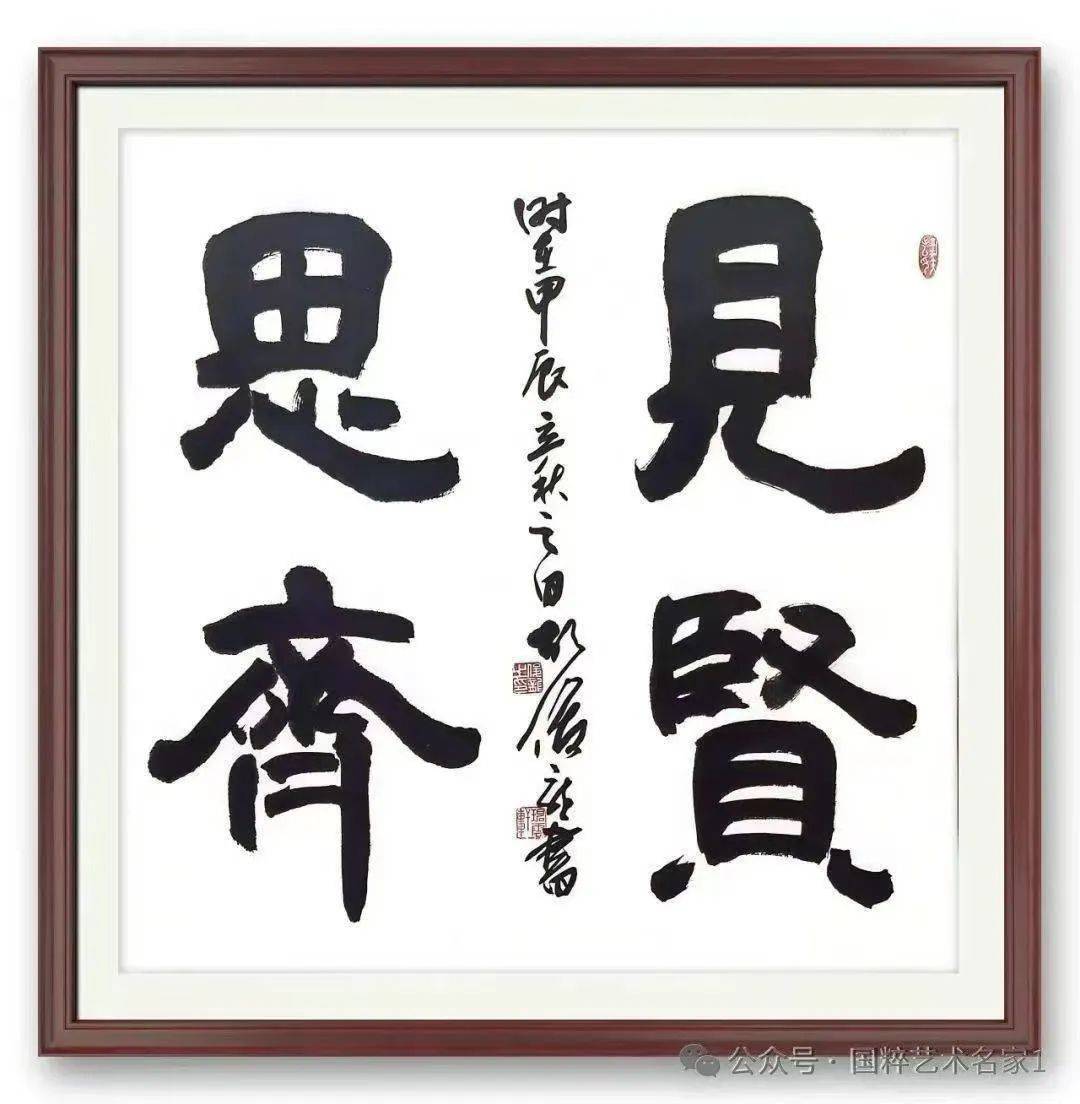 見賢
思齊
時在甲辰立秋之日
書
公众号·国粹艺术名家1